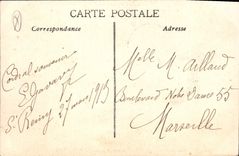 CARTE POSTALE
Correspondance
Adresse
Cordial souvenir
St Remy 27 mars 1913
Melle M. Aillaud
Boulevard Notre Dame 55
Marseille